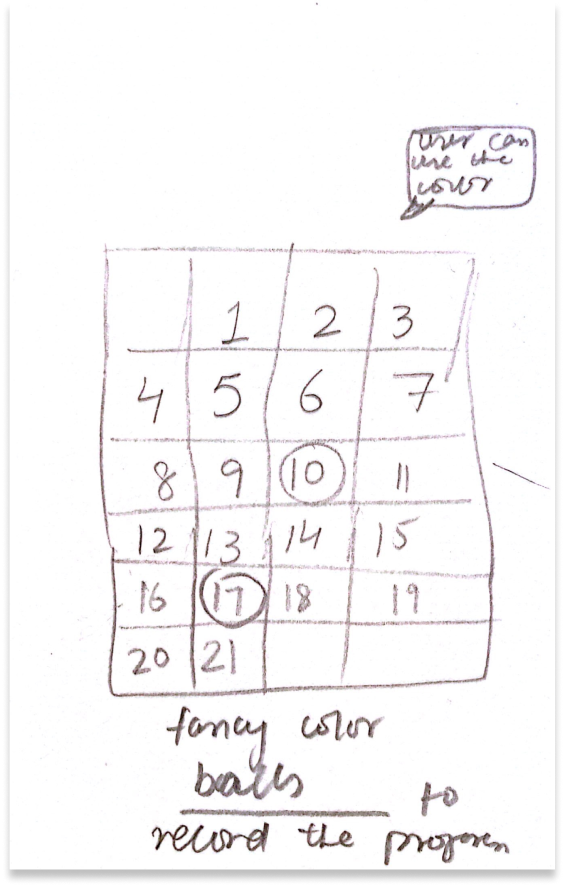 user can
use the
color
1 2 3
4 5 6 7
8 9 10 11
12 13 14 15
16 17 18 19
20 21
fancy color
balls
to
record the progress